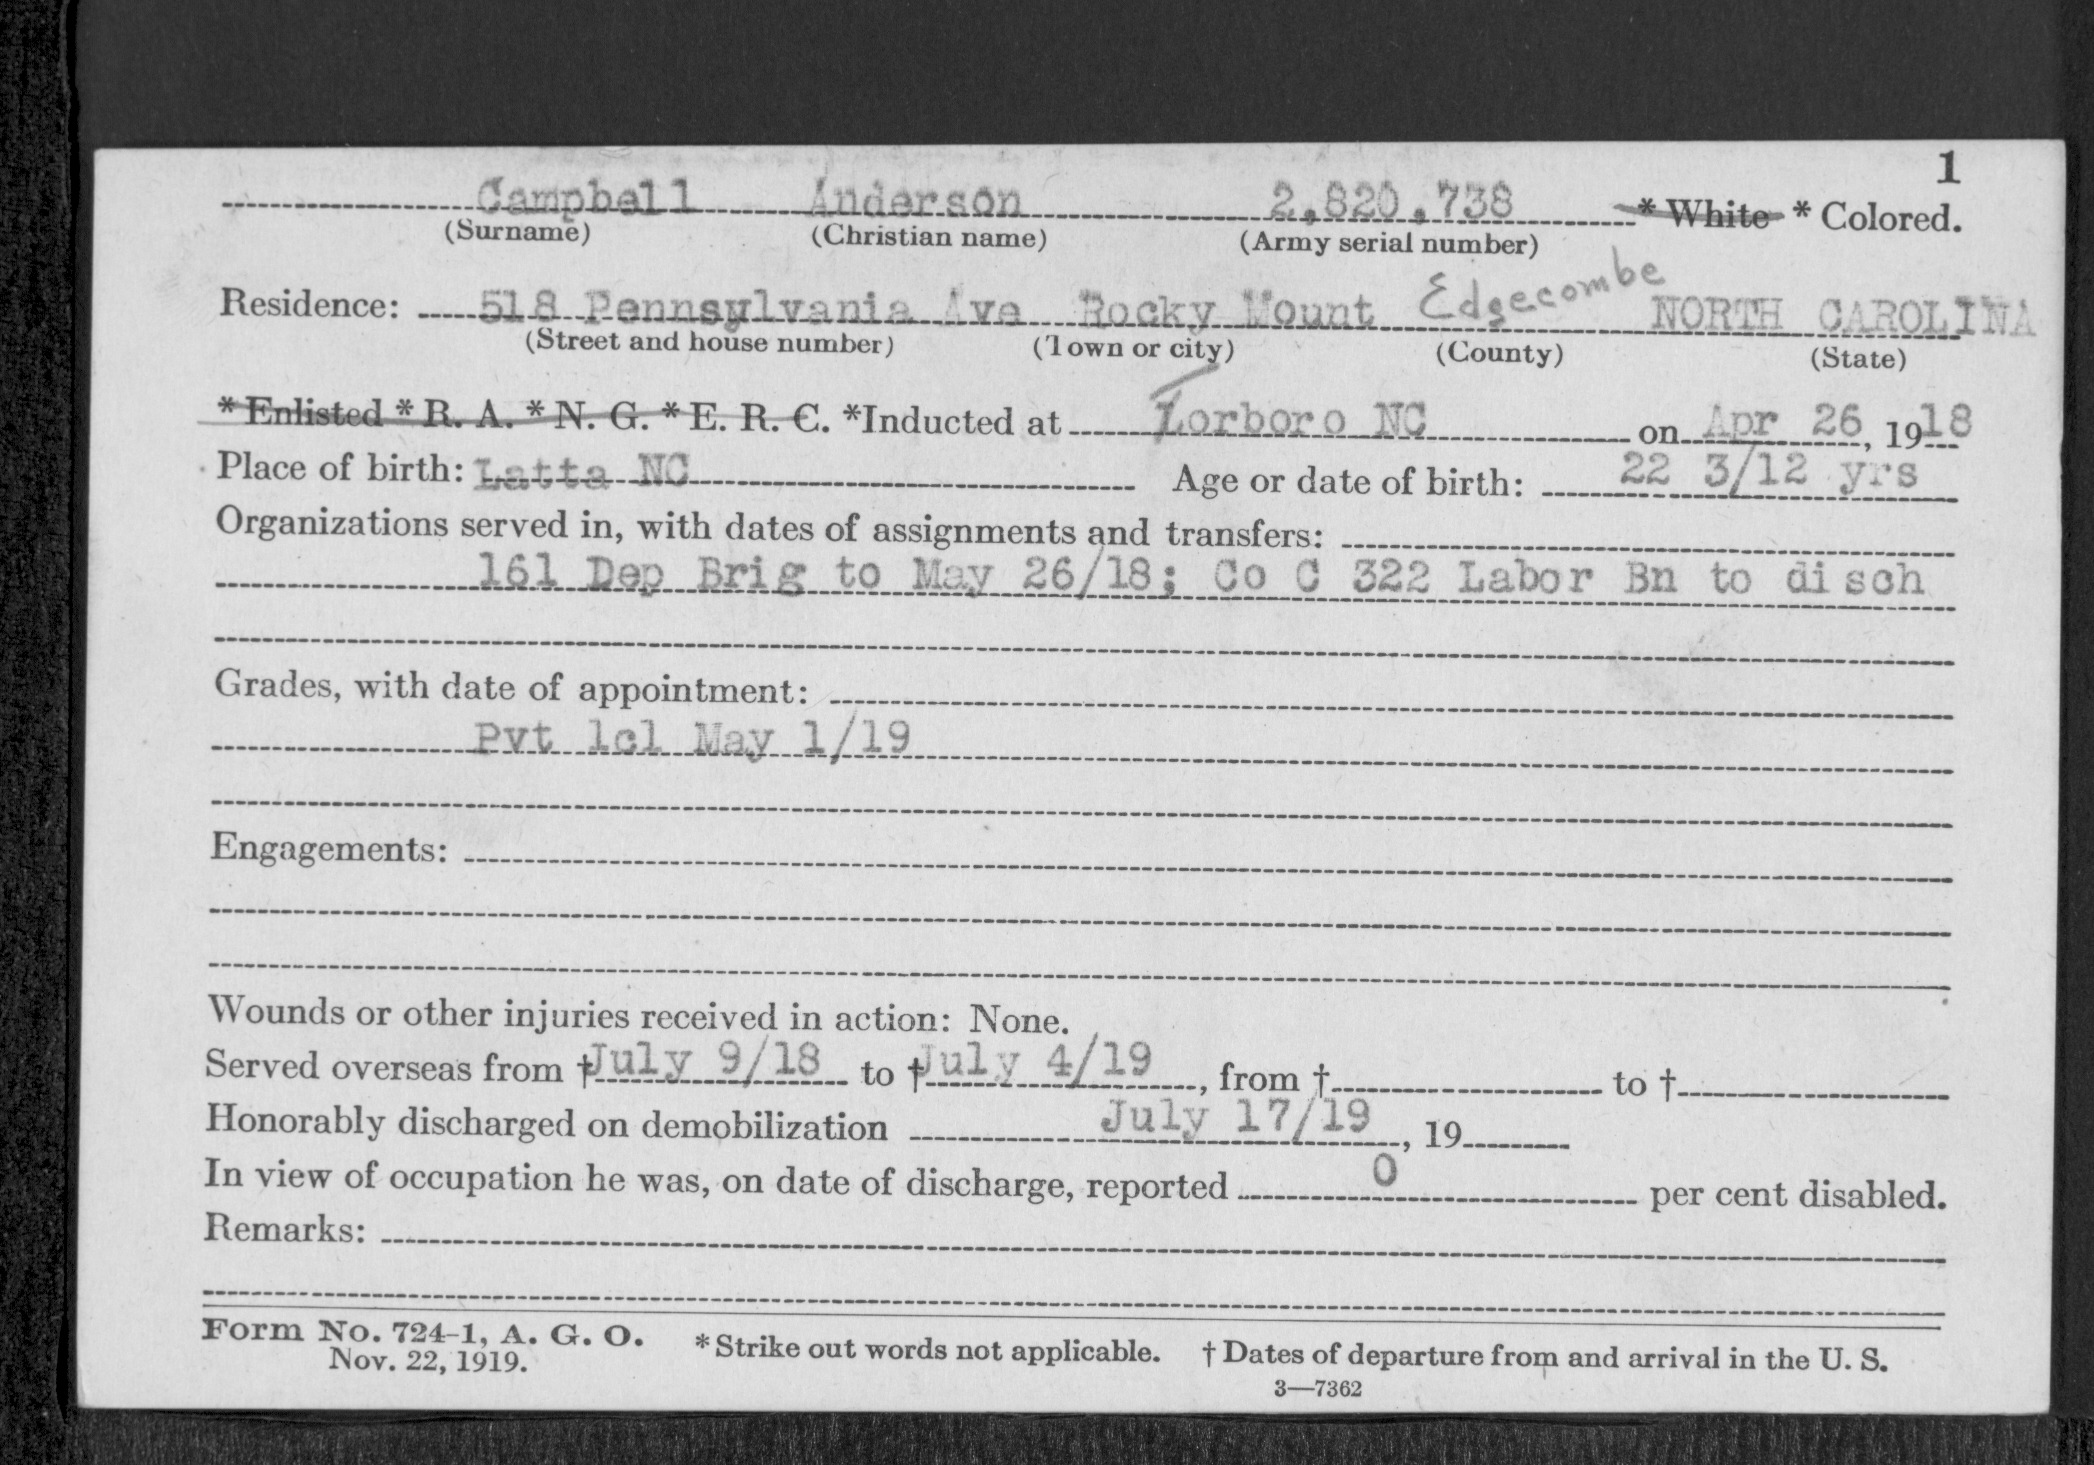 1
Campbell Anderson 2,820,738 * White * Colored.
(Surname) (Christian name) (Army serial number)
Residence: 518 Pennsylvania Ave Rocky Mount Edgecombe NORTH CAROLINA
(Street and house number) (Town or city) (County) (State)
* Enlisted * R. A. * N. G. * E. R. C. *Inducted at Torboro NC on Apr 26, 1918
Place of birth: Latta NC Age or date of birth: 22 3/12 yrs
Organizations served in, with dates of assignments and transfers:
161 Dep Brig to May 26/18; Co C 322 Labor Bn to disch
Grades, with date of appointment:
Pvt 1cl May 1/19
Engagements:
Wounds or other injuries received in action: None.
Served overseas from †July 9/18 to †July 4/19, from † to †
Honorably discharged on demobilization July 17/19, 19
In view of occupation he was, on date of discharge, reported 0 per cent disabled.
Remarks:
Form No. 724-1, A. G. O. * Strike out words not applicable. † Dates of departure from and arrival in the U. S.
Nov. 22, 1919.
3—7362